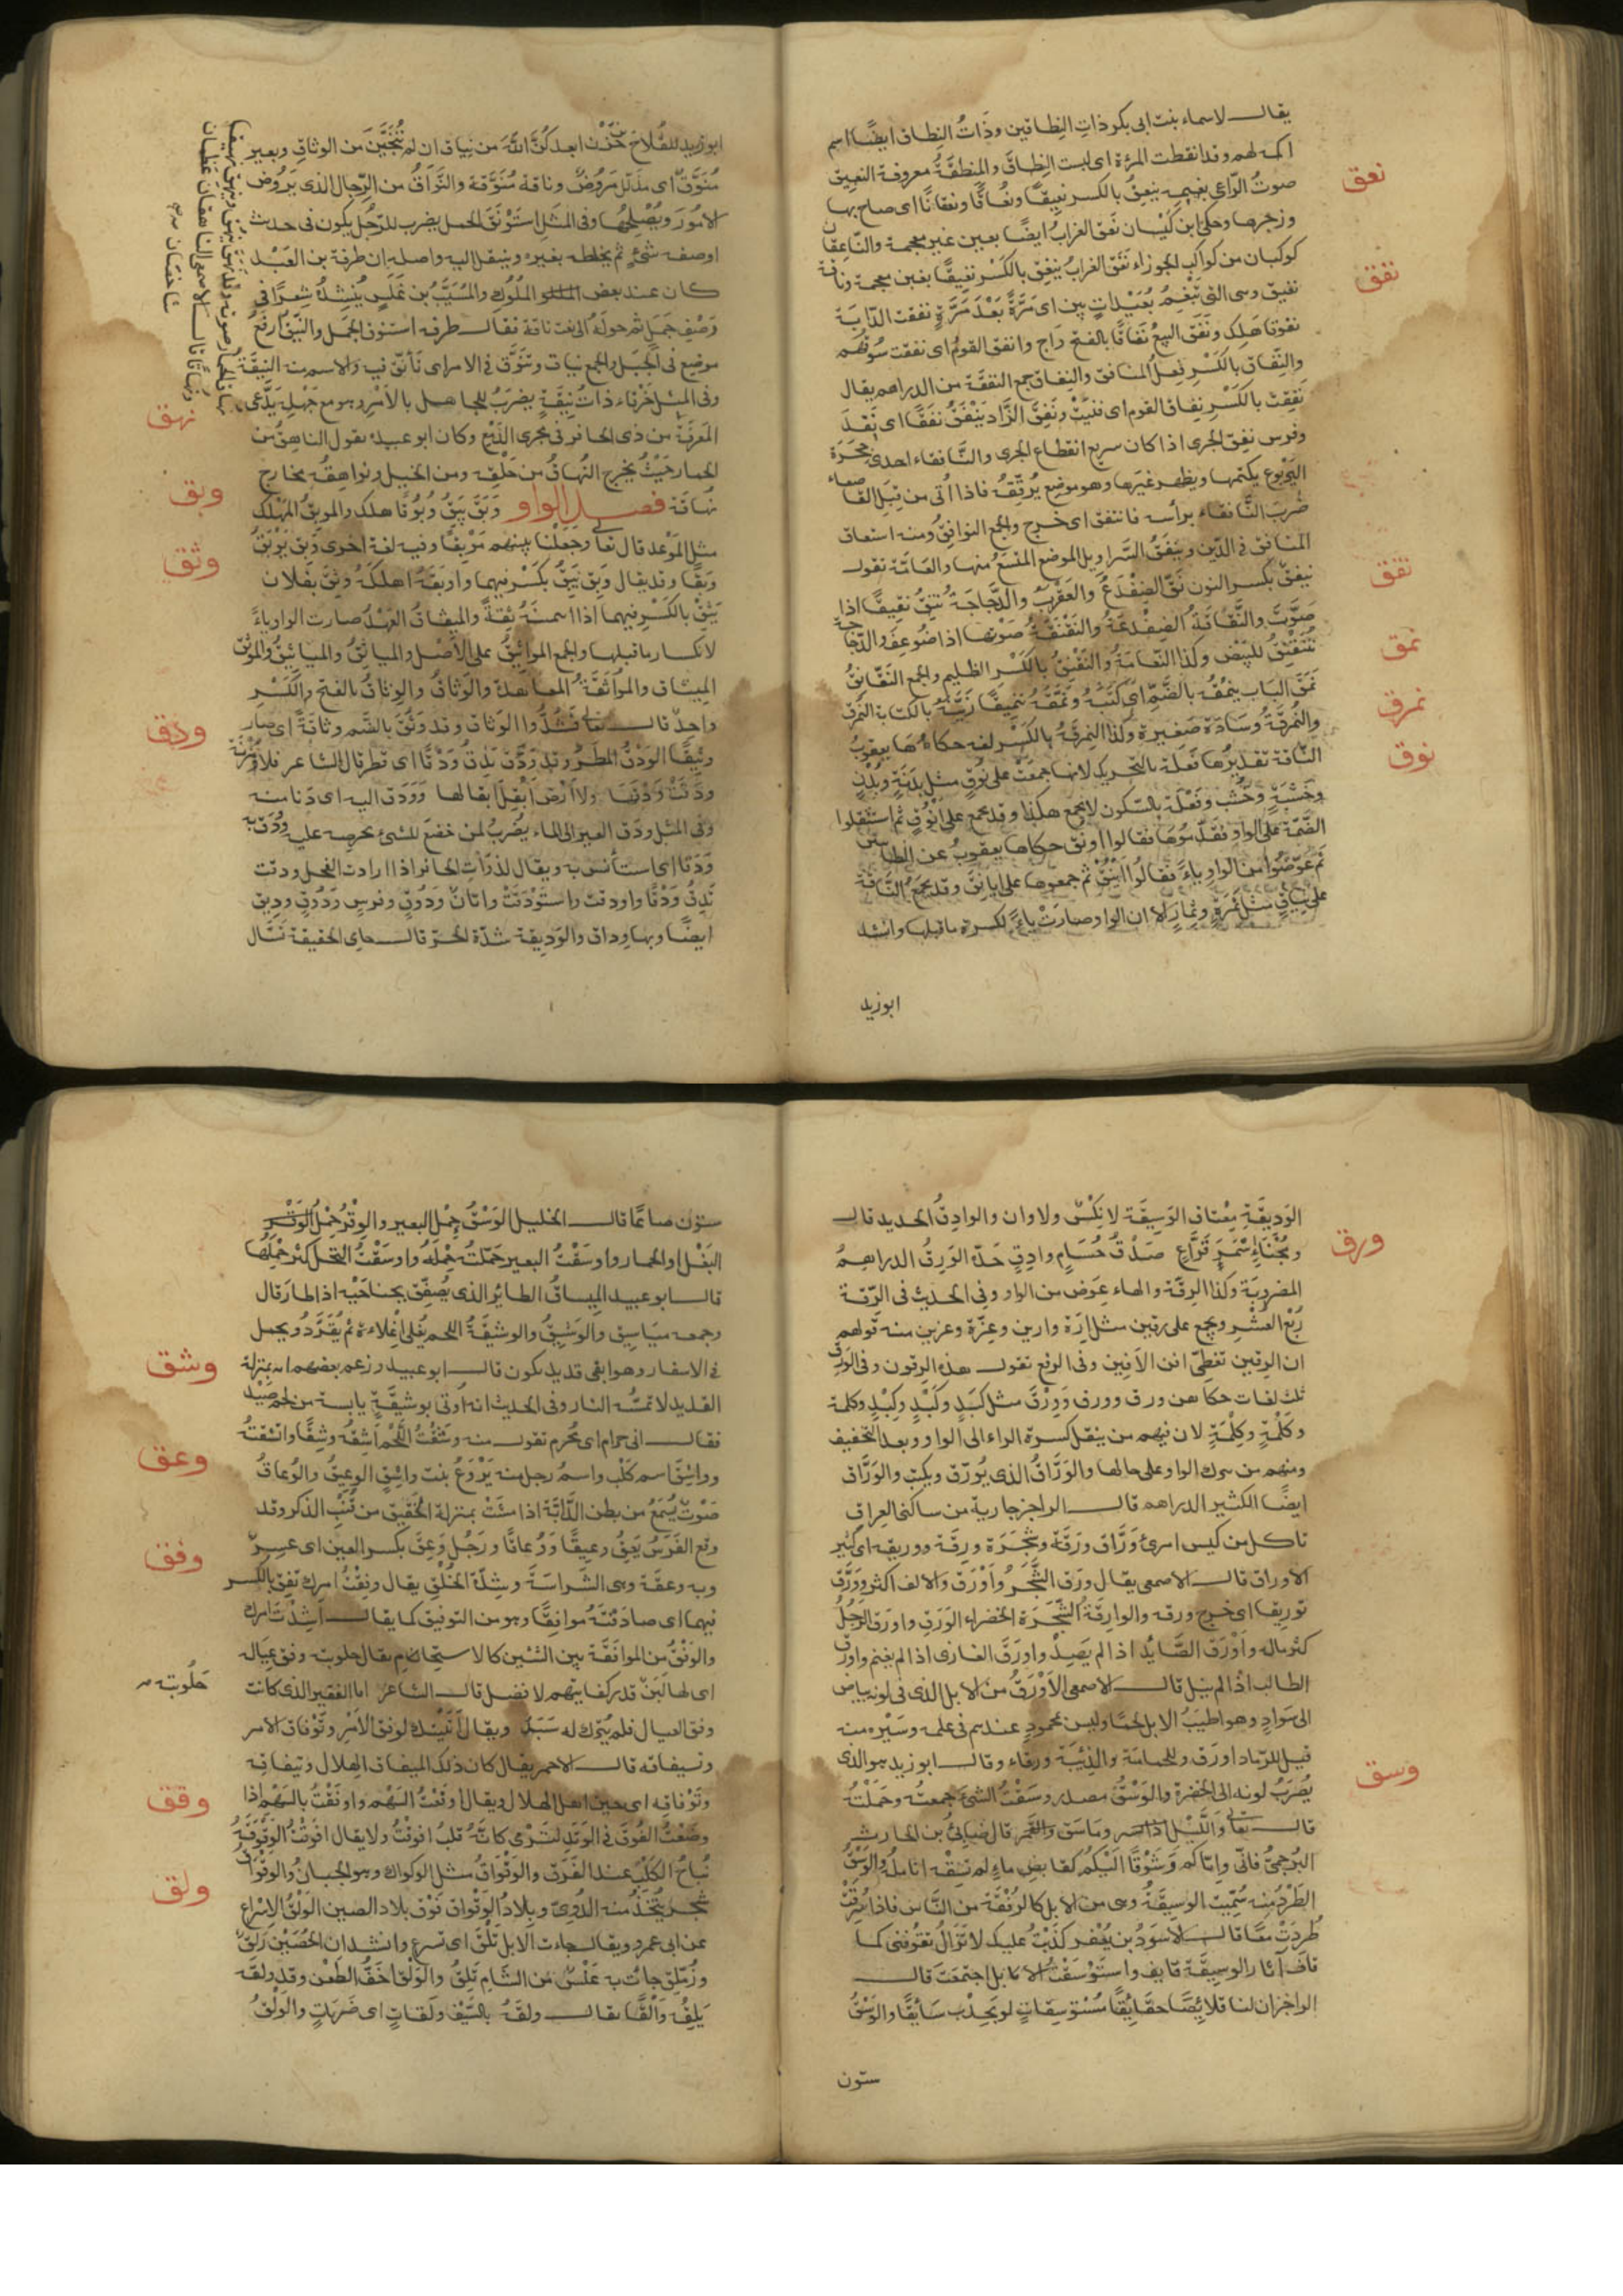 يقال لاسماء بنت ابى بكر ذات النِطاقين وذَاتُ النِطاق ايضًا اسم
اكمة لهم وقد انتطقت المرءة اى لبست النِطاقَ والمِنطقَةُ معروفة النعيق
نعق
صوتُ الرّاعى بغنمه ينعِقُ بالكسر نعيقًا ونُعَاقًا ونعقانًا اى صاح بها
وزجرها وحكى ابن كَيْسان نعَق الغرابُ ايضًا بعين غير معجمة والنّاعِقان
كوكبان من كواكب الجوزاء نَغَق الغرابُ ينغِقُ بالكَسْر نغيقًا بغين معجمة وناقة
نفق
نغيق وهى التى تَبْغِمُ بُعَيْداتِ بينٍ اى مَرَّةً بَعْدَ مَرَّةٍ نفقت الدّابّة
نفوقا هَلك ونَفَق البيعُ نَفَاقًا بالفتح رَاج وانفق القومُ اى نفقت سُوقُهُم
والنِّفاق بالكَسْرِ فِعلُ المنافق والنِفاق جمع النفقَة من الدراهم يقال
نَفِقت بالكَسْرِ نِفاق القوم اى فنيَتْ ونَفِقَ الزَّاد يَنْفَقُ نفَقًا اى نَفِدَ
وفرس نفِق الجرى اذا كان سريع انقطاع الجرى والنَّافقاء احدى حِجَرَة
اليَرْبوع يكتمها ويظهر غيرَها وهو موضع يُرقِقُهُ فاذا أُتى من قِبَل القاصعاء
ضرَبَ النَّافقاء برأسه فانتفق اى خرج والجمع النوافِقُ ومنه اشتقاق
المنافق فى الدّين ونَيْفَقُ السَّراويل الموضع المتسعُ منها والعَامّة تقول
نقق
نيفق بكسر النون نَقَّ الضِفْدَعُ والعَقْرَبُ والدَّجَاجَةُ تَنِقُّ نقيقًا اذا
صَوَّتَتْ والنَّقّاقَةُ الضِفْدَعَةُ والنَقْنَقَةُ صَوْتها اذا ضُوعِفَ والدّجاجة
نمق
تُنَقْنِقُ للبَيْض وكذا النّعَامَةُ والنِقْنِقُ بالكَسْرِ الظليم والجمع النَقَانِقُ
نَمَقَ الكتاب ينمُقُهُ بالضَّمِّ اى كَتَبَهُ ونَمَّقَهُ تنميقًا زَيَّنَهُ بالكتابة النُمرُق
نمرق
والنُمْرُقَةُ وِسَادَة صَغِيرة وكَذا النِمرِقَةُ بالكَسْرِ لغة حكاهَا يعقوبُ
نوق
النّاقة تقدِيرُهَا فَعَلَة بالتّحريك لانها جمعَتْ على نُوقٍ مثل بَدَنَةٍ وبُدْنٍ
وخَشَبَةٍ وخُشْبٍ وفَعْلَة بالسّكون لا يجمع هكذا وقد يجمع على اَنْوُقٍ ثم استثقلوا
الضَمّة على الواو فقدّموهَا فقالوا اونق حكاها يعقوبُ عن بعض الطائيين
ثم عوّضُوا من الواو ياءً فقالُوا اَيْنُقٌ ثم جمعوها على ايانق وقد يجمع النَّاقَة
على نِياقٍ مثل ثمَرَةٍ وثِمَارٍ الا ان الواو صارَتْ ياءً لكسرة ما قبلها وانشد
ابو زيد
ابو زيد للقُلاخ ابعدكُنَّ اللّهُ من نِياق ان لم تُنَجِّينَ من الوثاق وبعير
مُنَوَّقٌ اى مذلّل مَرُوضٌ وناقة مُنوَّقة والنوّاقُ من الرّجال الذى يَرُوض
الامُورَ ويُصْلِحُها وفى المثل استَوْنَقَ الجمل يضرب للرّجُل يكون فى حديث
او صفة شَىْءٍ ثم يخلطه بغيره وينتقل اليه واصله ان طرفة بن العَبْد
كان عند بعض الملوك والمُسَيَّبُ بن عَلَسٍ يُنشِدُهُ شِعرًا فى
وَصْفِ جَمَلٍ ثم حولَهُ الى نعت ناقة فقال طرفة استنوق الجمل والنِيقُ ارفَعُ
موضِع فى الجَبَل والجمع نياق وتنَوَّق فى الامر اى تَأنّق فيه والاسم منه النِيقَةُ
وفى المثل خَرْقاء ذاتُ نِيقَةٍ يضرَبُ للجاهل بالأمْرِ وهو مع جَهْلِه يَدَّعى
نهق
المَعرِفَة من ذى الحافر فى مجرى الدَّمْع وكان ابو عبيدة يقول الناهِقُ من
الحمار حَيْثُ يخرج النُهاقُ من حَلْقِه ومن الخيل ونواهِقُه مخارج
وبق
نُهاقه فصل الواو وَبَقَ يَبِقُ وُبُوقًا هلك والموبِقُ المَهْلِك
مثل المَوْعد قال تعالى وجعَلْنا بينهم مَوْبِقًا وفيه لغة اخرى وَبِقَ يَوْبَقُ
وثق
وَبَقًا وقد يقال وَبِق يَبِقُ بكَسْرِ فيهما واوبَقَهُ اهلكَهُ وثِقَ بفلان
يَثِقُ بالكَسْرِ فيهما اذا ائتمنَهُ ثِقَةً والمِيثاقُ العَهْدُ صارت الواو ياءً
لانكسار ما قبلها والجمع المواثِيقُ على الأصْل والمياثِقُ والمياثيقُ والموثِقُ
المِيثاق والمواثَقَةُ المعاهدة والوَثاقُ والوِثاقُ بالفتح والكَسْرِ
واحِدٌ قال تعالى فَشُدُّوا الوَثاق وقد وَثُقَ بالضّم وثاقَةً اى صار
ودق
وثِيقًا الوَدْقُ المَطَرُ وقد وَدَق يَدِقُ وَدْقًا اى قطر قال الشاعر فلا مُزْنَة
ودَقَتْ وَدْقَهَا ولا اَرْض اَبْقَل اِبقالها ووَدَق اليه اى دَنا منه
وفى المثل ودَق العير الى الماء يُضرَبُ لمن خضعَ للشىء بحرصه عليه وودَقتُ به
وَدْقًا اى استأنَسْتُ به ويقال لذَوَاتِ الحافر اذا ارادت الفحل ودقت
تَدِقُ وَدْقًا واودقت واستَوْدَقَتْ واتان وَدُوقٌ وفرس وَدُوقٌ ودِيق
ايضًا وبها وداق والوَدِيقة شدّة الحرّ قال حامى الحقيقة نسّال
الوَدِيقَةِ مِعْتاق الوَسِيقَة لا نِكْسٌ ولا وان والوادِقُ الحديد قال
ورق
ومُجْنَاءٍ اَسْمَر قَرَّاع صَدْقٍ حُسَامٍ وادِقٍ حَدّه الوَرِقُ الدراهِمُ
المضروبَة وكَذا الرِقَة والهاء عِوَض من الواو وفى الحديث فى الرّقة
رُبْع العُشْر ويجمع على رِقين مثل اِرَة وارين وعِزَة وعزين منه قولهم
ان الرِقين تغطِّى افن الأفين وفى الرفع تقول هذه الرِقون وفى الوَرِق
ثلث لغات حكاهن ورق وورِق ووَرْق مثل كَبِد وكَبْدٍ وكِبْدٍ وكلمة
وكَلْمَةٍ وكِلْمَةٍ لان فيهم من ينقل كسرة الراء الى الواو وبعد التخفيف
ومنهم من يترك الواو على حالها والوَرّاقُ الذى يُورّق ويكتب والوَرَّاق
ايضًا الكثير الدراهم قال الراجز جارية من ساكنى العِراق
تاكل من كيس امرىء وَرَّاق وَرَقَةٌ وشَجَرَة ورِقَة ووريقة اى كثير
الأوراق قال الاصمعى يقال ورَق الشَّجَرُ واَوْرَق والالف اكثر ووَرَّق
توريقا اى خرج ورقه والوارِقَةُ الشَّجَرَة الخضراء الوَرَق واورَق الرَجُلُ
كثر ماله واَوْرَق الصَّايد اذا لم يَصِدْ واورَقَ الغازى اذا لم يغنم واورَق
الطالب اذا لم ينَل قال الاصمعى الأوْرَقُ من الابل الذى فى لونه بياض
الى سَوادٍ وهو اطيَبُ الابل لحمًا وليس بمحمودٍ عندهم فى عمله وسَيْرِه منه
قيل للرّماد اورَق وللحمامَة والذِئبَة ورقاء وقال ابو زيد هو الذى
وسق
يُضرَبُ لونه الى الخضرة والوَسْقُ مصدر وسَقْتُ الشىءَ جمعتُه وحَمَلْتُه
قال تعالى وَاللَّيْلِ وما وَسَق والقمر قال ضابئ بن الحارث
البُرجمىّ فانّى وايّاكم وَشَوْقًا اليْكُم كقابِض ماءٍ لم تسِقْهُ اناملُه والوَسْقُ
الطَرْدُ منه سُمِّيَت الوسيقَةُ وهى من الابل كالرُفْقَة من النَّاس فاذا سُرِقَتْ
طُرِدَتْ معًا قال الاسوَدُ بن يُعْفر كذَبْتُ عليك لا تزالُ تقوفنى كما
قافَ آثارَ الوسِيقَة قايف واستَوْسَقتِ الابل اجتمعَت قال
الراجز ان لنا قلائِصًا حقَايِقًا مُسْتوسِقاتٍ لو يَجِدْنَ سَائِقًا والوَسْقُ
ستون
ستّون صاعًا قال الخليل الوَسْقُ حِمْل البعير والوِقْرُ حِمْلُ
البَغْل او الحمار واوسَقْتُ البعير حَمّلتُهُ حِمْلَهُ واوسَقَتْ النخل كثر حَمْلُها
قال ابو عبيد المِيساقُ الطائر الذى يُصفِّق بجناحَيْه اذا طار قال
وجمعه مَيَاسِيق والوَشِيقُ والوشيقَةُ اللحم يُغلى اِغلاءة ثم يُقدَّدُ ويحمل
وشق
فى الاسفار وهو ابقى قديد يكون قال ابو عبيد وزعم بعضهم انه بمنزلة
القديد لا تمسّه النار وفى الحديث انه اُوتى بوشيقَةٍ يابسة من لحم صَيْدٍ
فقال انى حرام اى محرم تقول منه وشَقْتُ اللّحْمَ اَشِقُهُ وشقًا واتّشقتُهُ
وعق
وواشِقٌ اسم كَلْب واسم رجل منه بَرْوَعُ بنت واشِقٍ الوعِيقُ والوُعاقُ
صَوْتٌ يُسمَعُ من بطن الدَّابَّة اذا مشَتْ بمنزلة الخَقيق من قُنْبِ الذكر وقد
وعق الفَرَسُ يَعِقُ وعِيقًا ووُعاقًا ورَجُل وَعِق بكسر العين اى عسِرٌ
وفق
وبه وعقَة وهى الشَّرَاسَةُ وشِدّة الخلْقِ يقال وفِقْتُ امرك تَفِق بالكسر
فيهما اى صادَفْتَهُ موافِقًا وهو من التوفيق كما يقال رشدْت اَمرك
والوَفْقُ من الموافَقَة بين الشيئين كالالتحام يقال حلوبته وفق عِيَاله
حَلُوبته
اى لها لبَن قدر كفايتهم لا فضل قال الشاعر اما الفقير الذى كانت
وفق العيال فلم يُترك له سَبَدٌ ويقال اتَيْتك لوفق الأمرِ وتَوْفاق الامر
وتيفاقه قال الاحمر يقال كان ذلك لميفاق الهلال وتيفاقِه
وقق
وتَوْفاقِه اى حين اهلَّ الهلال ويقال اوفَقْتُ السَهْم واوفَقْتُ بالسَهْم اذا
وضَعْتُ الفُوقَ فى الوَتَرِ لترْمى كانّه قلبُ افوقْتُ ولا يقال افوَقْتُ الوَقْوَقَةُ
نُباحُ الكلْبِ عند الفَرَق والوَقْوَاقُ مثل الوكواك وهو الجبانُ والوَقْواق
ولق
شجر يُتّخَذُ منه الدُوِىّ وبلادُ الوَقْواق فَوْق بلاد الصين الوَلْقُ الاِسْراع
عن ابى عمرو ويقال جاءت الابل تَلِقُ اى تسرع وانشد ان الحُصَيْن زَلِقٌ
وزُمّلِق جاءَتْ به عَنْسٌ من الشام تَلِقْ والوَلْق اخَفُّ الطَعْن وقد ولقَه
يَلِقُه وَلْقًا يقال ولقَهُ بالسَّيْفِ ولَقاتٍ اى ضَرَبَاتٍ والوَلْقُ